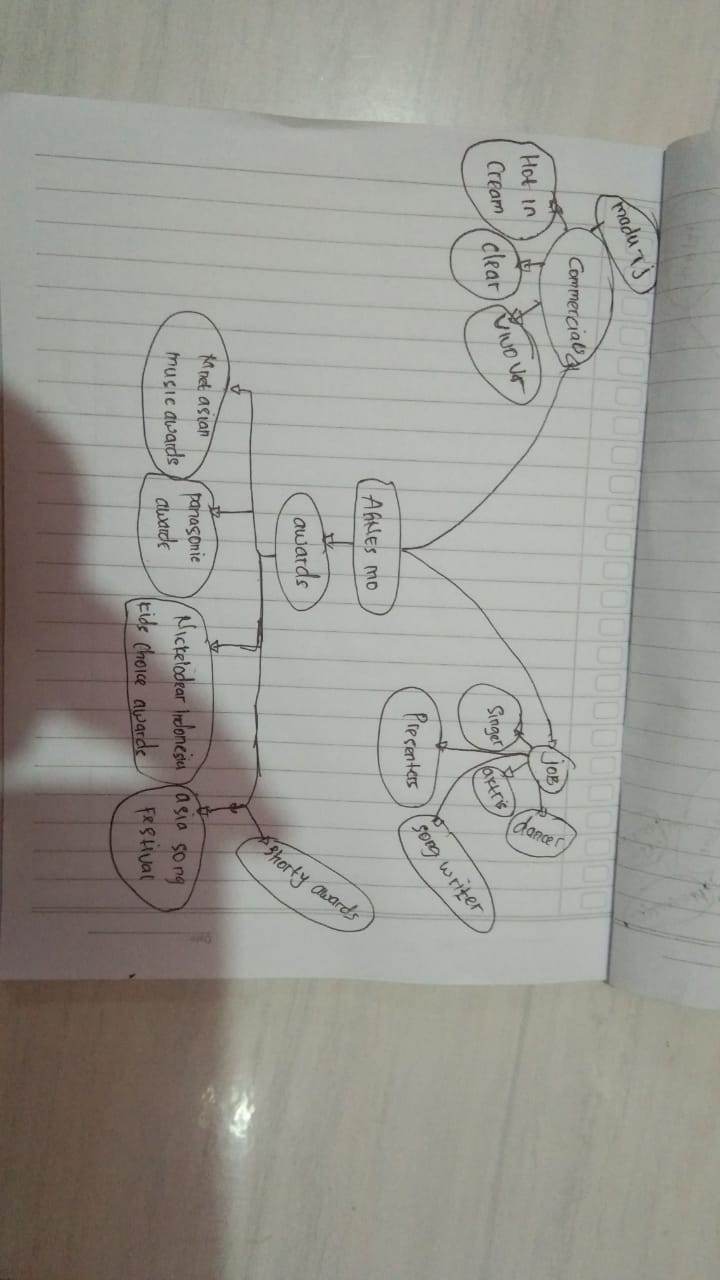 madu-rs
Commercials
Hot in
Cream
Clear
VIVO V5
JOB
Singer
artris
dancer
Presenters
song writer
AGNES MO
awards
Mnet asian
music awards
panasonic
awards
Nickelodear Indonesia
kids choice awards
asia song
Festival
shorty awards
Date